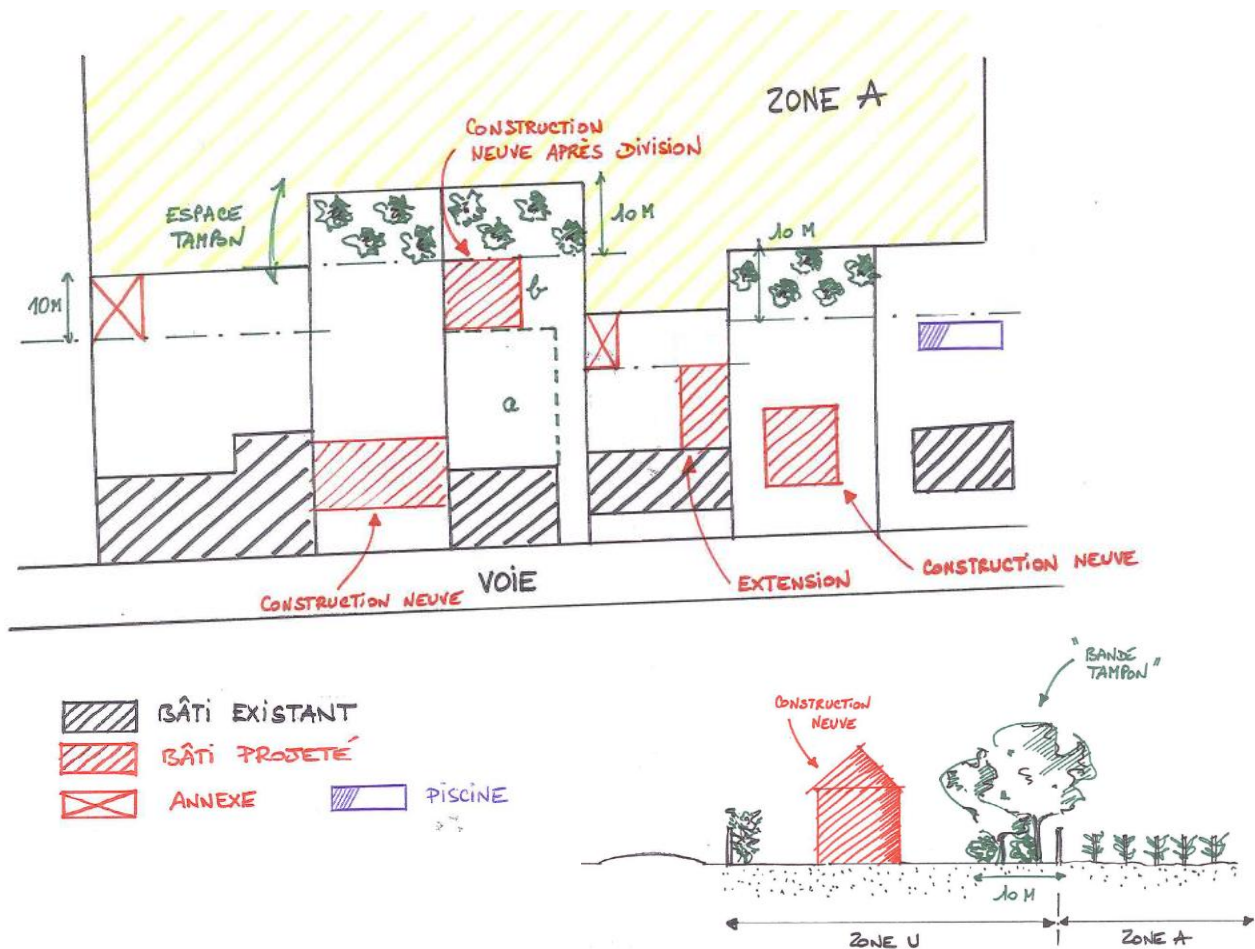 ZONE A
CONSTRUCTION
NEUVE APRÈS DIVISION
ESPACE
TAMPON
10 M
10 M
10M
b
a
VOIE
CONSTRUCTION NEUVE
EXTENSION
CONSTRUCTION NEUVE
BÂTI EXISTANT
BÂTI PROJETÉ
ANNEXE
PISCINE
"BANDE
TAMPON"
CONSTRUCTION
NEUVE
10 M
ZONE U
ZONE A